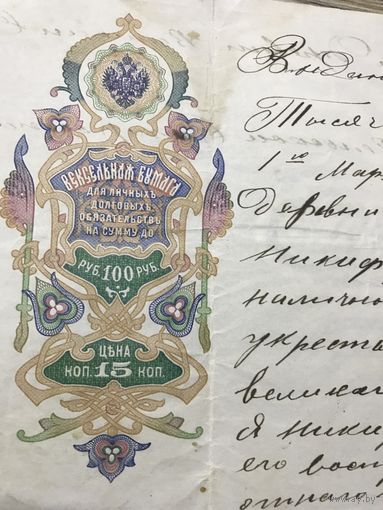 ВЕКСЕЛЬНАЯ БУМАГА
ДЛЯ ЛИЧНЫХЪ
ДОЛГОВЫХЪ
ОБЯЗАТЕЛЬСТВЪ
НА СУММУ ДО
РУБ. 100 РУБ.
ЦѢНА
КОП. 15 КОП.
Выдан
Тысяч
1го Мар
Деревни
Никиф
налично
у кресть
великаг
Я Ники
его
www.ay.by